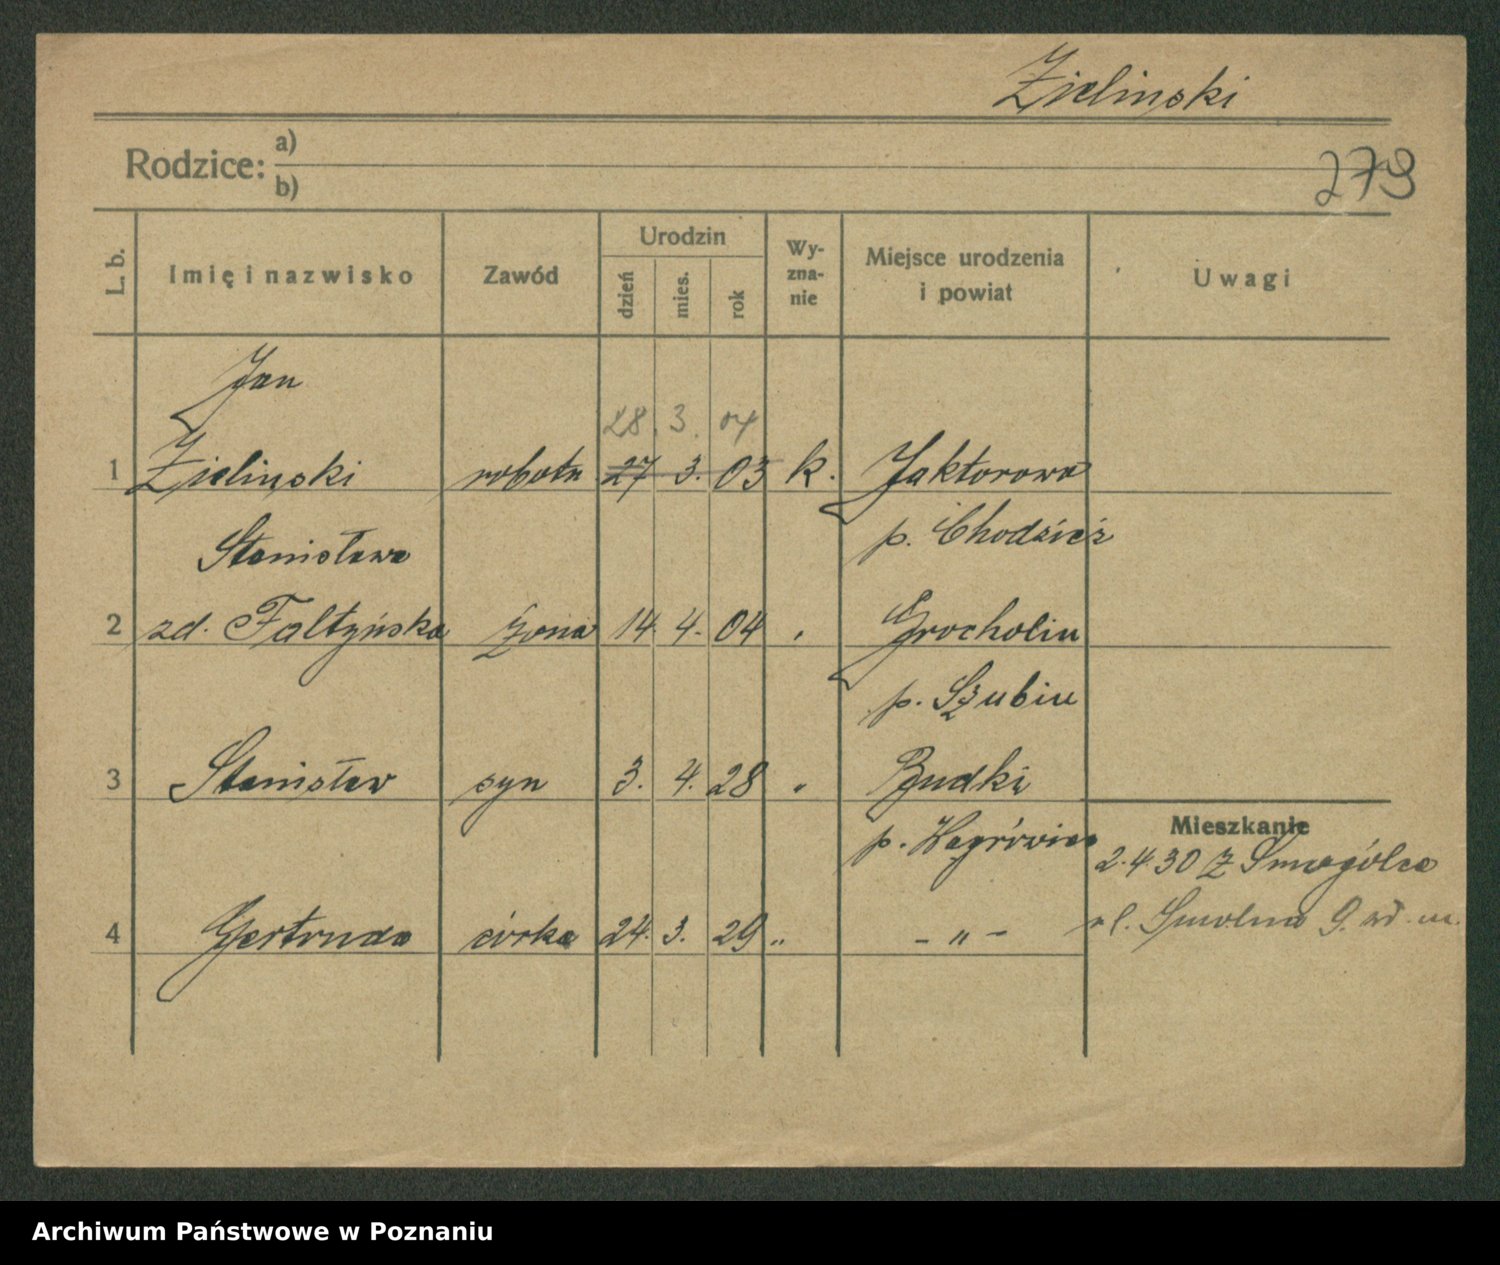 Zielinski
Rodzice: a)
b)
279
L. b.
Imię i nazwisko
Zawód
Urodzin
dzień
mies.
rok
Wy-
zna-
nie
Miejsce urodzenia
i powiat
Uwagi
Jan
28. 3. 04
1 Zielinski robotn 27 3. 03 k. Jaktorowo
p. Chodzież
Stanisława
2 zd. Fałtyńska żona 14. 4. 04 " Grocholin
p. Szubin
3 Stanisław syn 3. 4. 28 " Budki
p. Wągrówiec
Mieszkanie
2.4.30 z Smogólca
ul. Smolna 9.
4 Gertruda córka 24. 3. 29 " - " -
Archiwum Państwowe w Poznaniu